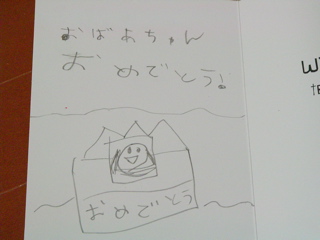 おばあちゃん
おめでとう!
おめでとう